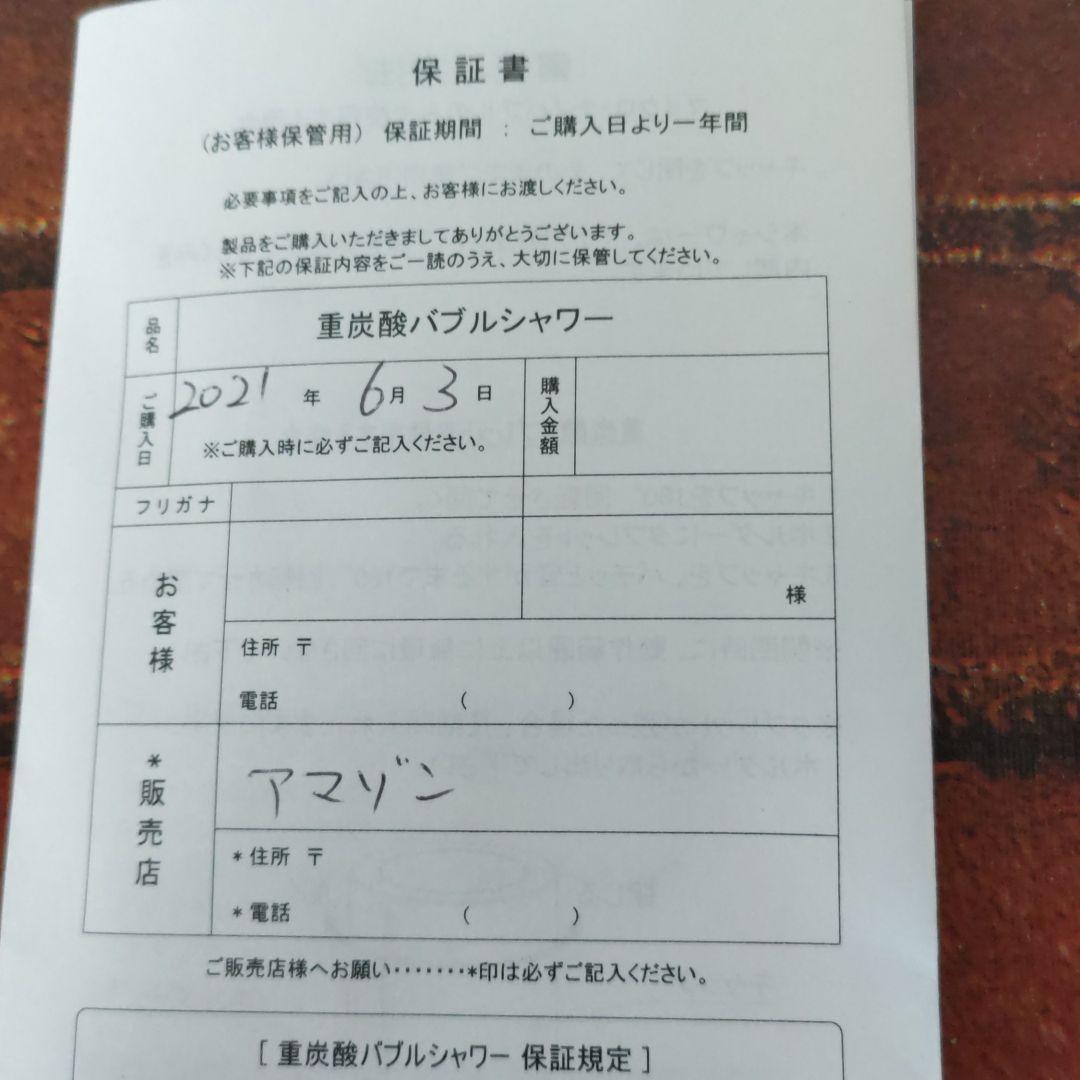 保証書
(お客様保管用) 保証期間 : ご購入日より一年間
必要事項をご記入の上、お客様にお渡しください。
製品をご購入いただきましてありがとうございます。
※下記の保証内容をご一読のうえ、大切に保管してください。
品名 重炭酸バブルシャワー
ご購入日 2021 年 6月 3 日 購入金額
※ご購入時に必ずご記入ください。
フリガナ
お客様 様
住所 〒
電話 ( )
*販売店 アマゾン
*住所 〒
*電話 ( )
ご販売店様へお願い・・・・・・・*印は必ずご記入ください。
[ 重炭酸バブルシャワー 保証規定 ]